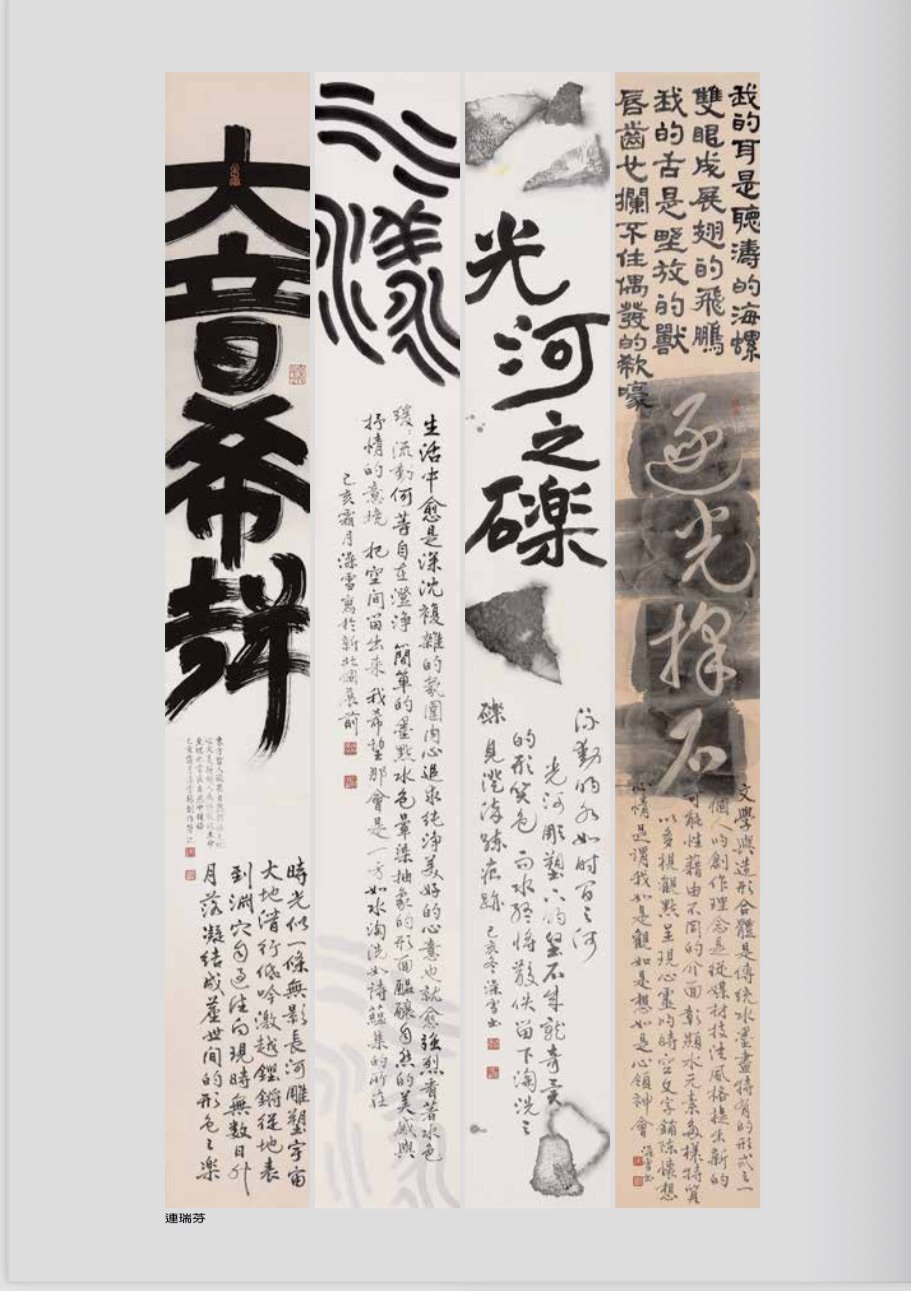 我的耳是聽濤的海螺
雙眼成展翅的飛鵬
我的舌是野放的獸
唇齒也攔不住偶發的歎嚎
逐光擇石
文學與造形合體是傳統水墨畫特有的形式之一
個人的創作理念是從媒材技法風格提出新的
可能性藉由不同的介面彰顯水元素多樣特質
以多視觀點呈現心靈的時空文字鋪陳懷想
心情是謂我如是觀如是想如是心領神會
光河之礫
流動的水如時間之河
光河雕塑下的堅石成就奇美
的形與色而水終將散佚留下淘洗之
礫見澄淨硃痕跡
己亥冬深雪書
漾
生活中愈是深沈複雜的氛圍內心追求純淨美好的心意也就愈強烈看著水色
緩緩流動何等自在澄淨簡單的墨點水色暈染抽象的形面醞釀自然的美感與
抒情的意境把空間留出來我希望那會是一方如水淘洗如詩蘊集的所在
己亥霜月深雪寫於新北個展前
大音希聲
時光似一條無影長河雕塑宇宙
大地潛行低吟激越鏗鏘從地表
到淵穴自過往向現時無數日升
月落凝結成塵世間的形色之樂
連瑞芬